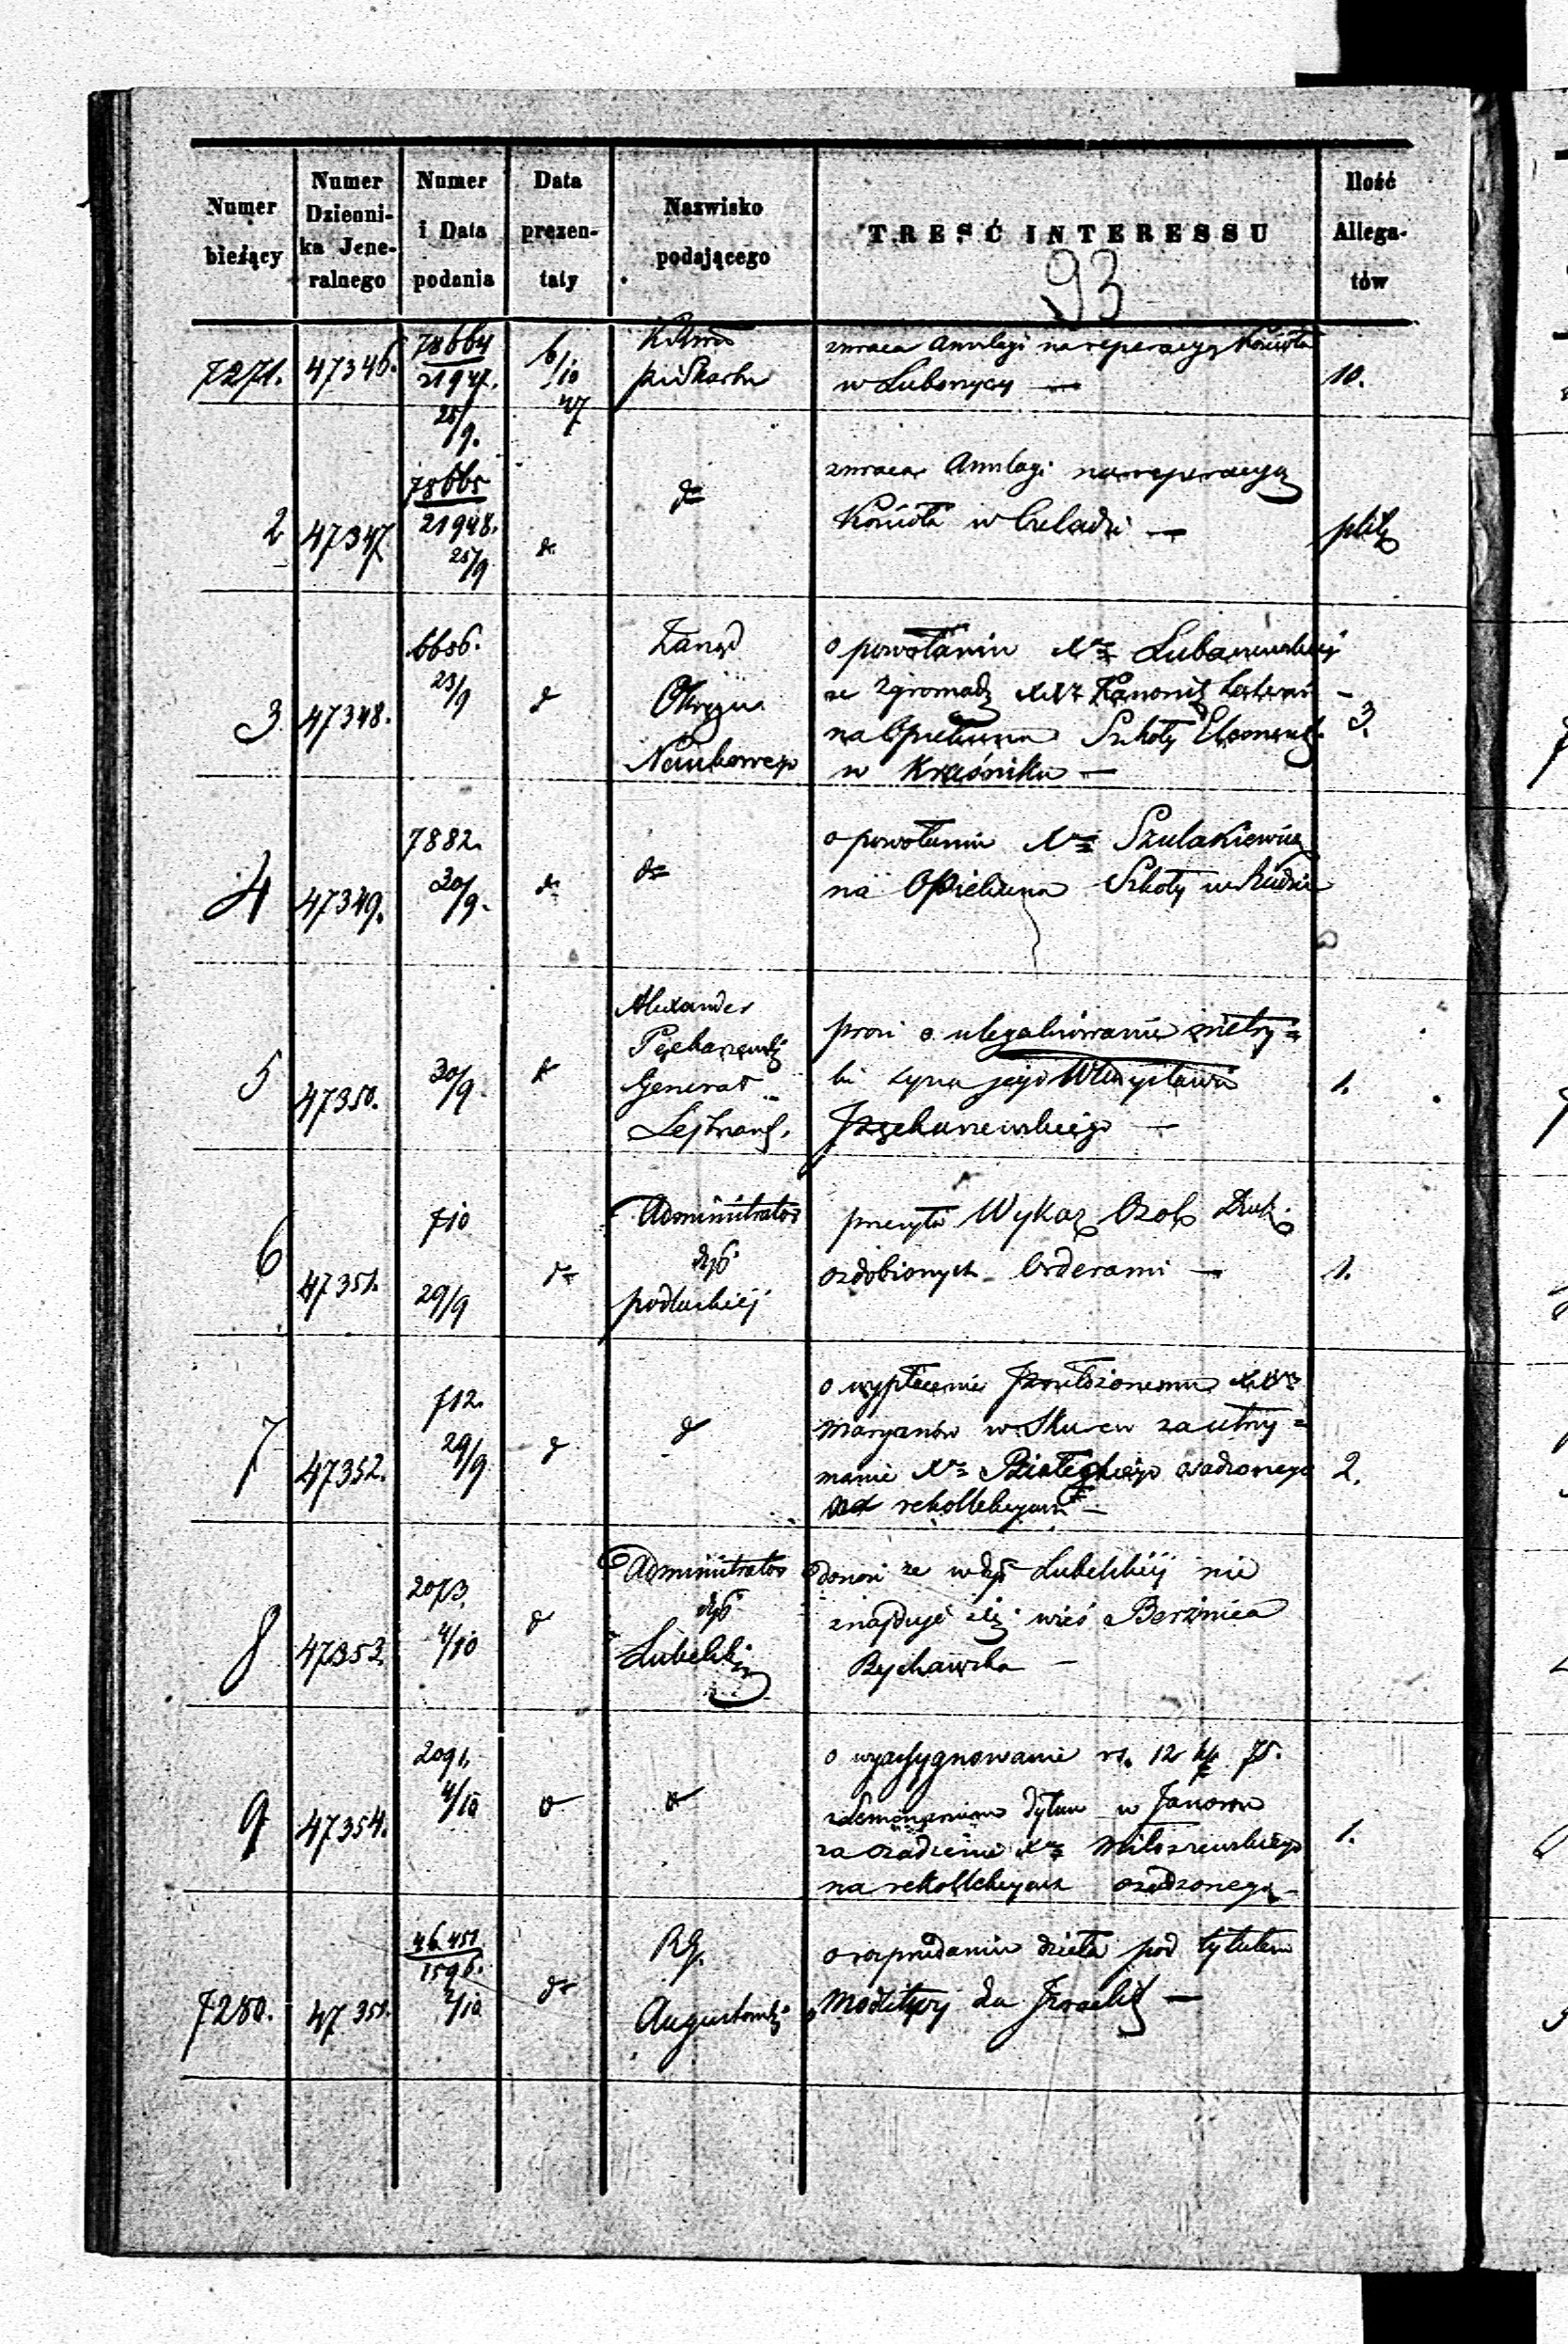 Numer bieżący
Numer Dzienni-ka Jene-ralnego
Numer i Data podania
Data prezen-taty
Nazwisko podającego
TREŚĆ INTERESSU
Ilość Allega-tów
93
7271. 47346. 78664 21947. 25/9. 6/10 47
zwraca Anszlagi na reperacyą Kościoła
w Lubonycy —
10.
2 47347 78665 21948. 25/9 do do
zwraca Anszlagi na reperacyą
Kościoła w Czeladzi —
3 47348. 6656. 23/9 do
Zarząd
Okręgu
Naukowego
o powołaniu Xdza
ze Zgromadz XXży Kanonik Lateran —
na Opiekuna Szkoły Elementar.
w Kraśniku —
3.
4 47349. 7882. 30/9. do do
o powołaniu Xdza Szulakiewicz
na Opiekuna Szkoły w Rudzie
5 47350. 30/9. do
Alexander
Generał
Lejtnant.
prosi o ulegalizowanie metry=
ki syna jego Władysława
—
1.
6 47351. 710 29/9 do
Administrator
dyć
podlaskiej
przesyła Wykaz Osób Duch.
ozdobionych Orderami —
1.
7 47352. 712. 29/9 do do
o wypłacenie Przełożonemu XXży
Maryanów w Skurcu za utrzy=
manie Xdza osadzonego
na rekollekcyach —
2.
8 47353. 2073. 4/10 do
Administrator
dyć
Lubelskiej
donosi że w dyć Lubelskiej nie
znajduje się wieś Berźnica
Bychawska —
9 47354. 2091. 4/10 do do
o wyassygnowanie rs. 12 kp. 75.
w Janowie
za osadzenie Xdza Miłoszewskiego
na rekollekcyach osadzonego —
1.
7280. 47355. 46.451 1596. 2/10 do
RG.
Augustowski
o rozprzedaniu dzieła pod tytułem
Modlitwy dla Izraelit —